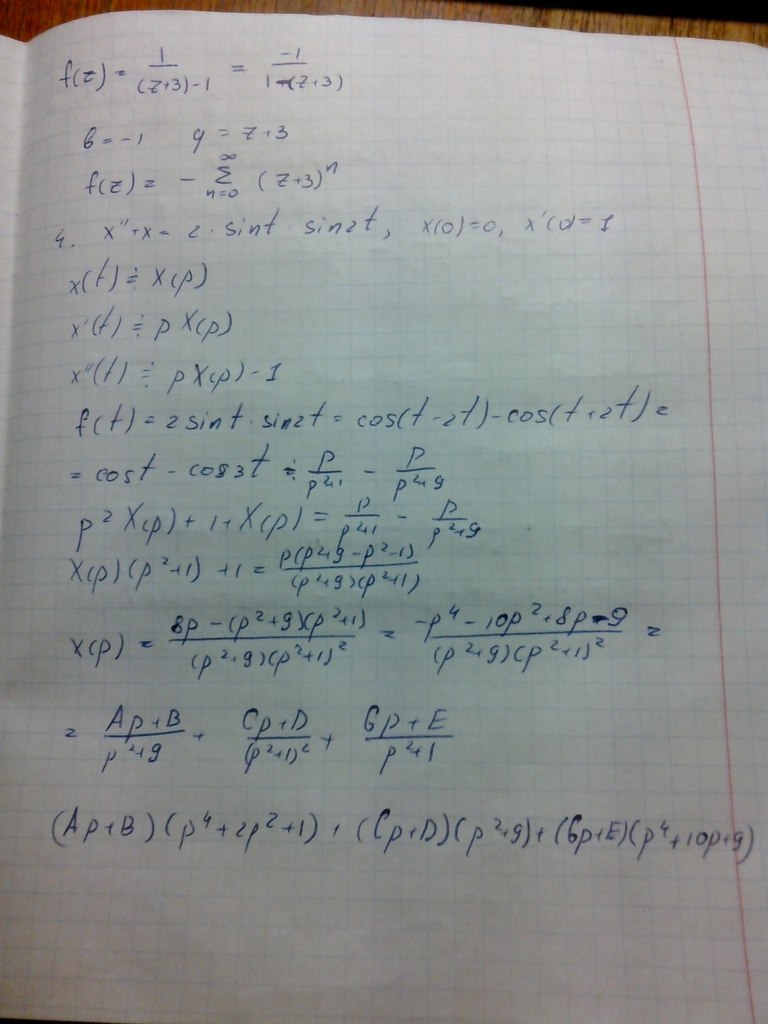 f(z) = 1/((z+3)-1) = -1/(1-(z+3))
b = -1 q = z+3
f(z) = - ∑_{n=0}^{∞} (z+3)^n
4. x''+x = 2 · sint · sin2t, x(0)=0, x'(0)=1
x(t) ≓ X(p)
x'(t) ≓ p X(p)
x''(t) ≓ p X(p) - 1
f(t) = 2 sint · sin2t = cos(t-2t) - cos(t+2t) =
= cost - cos3t ≓ p/(p²+1) - p/(p²+9)
p² X(p) + 1 + X(p) = p/(p²+1) - p/(p²+9)
X(p)(p²+1) + 1 = p(p²+9-p²-1)/((p²+9)(p²+1))
X(p) = (8p-(p²+9)(p²+1))/((p²+9)(p²+1)²) = (-p⁴-10p²+8p-9)/((p²+9)(p²+1)²) =
= (Ap+B)/(p²+9) + (Cp+D)/(p²+1)² + (Gp+E)/(p²+1)
(Ap+B)(p⁴+2p²+1) + (Cp+D)(p²+9) + (Gp+E)(p⁴+10p+9)